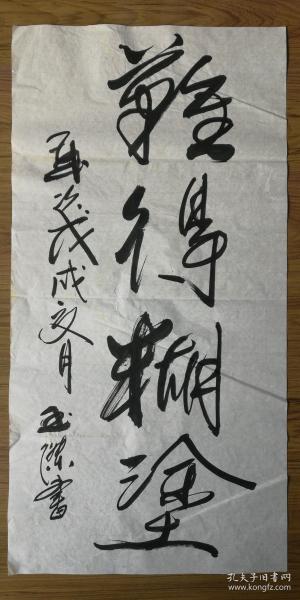 難得糊塗
歲次戊戌文月
玉傑書
孔夫子旧书网
www.kongfz.com